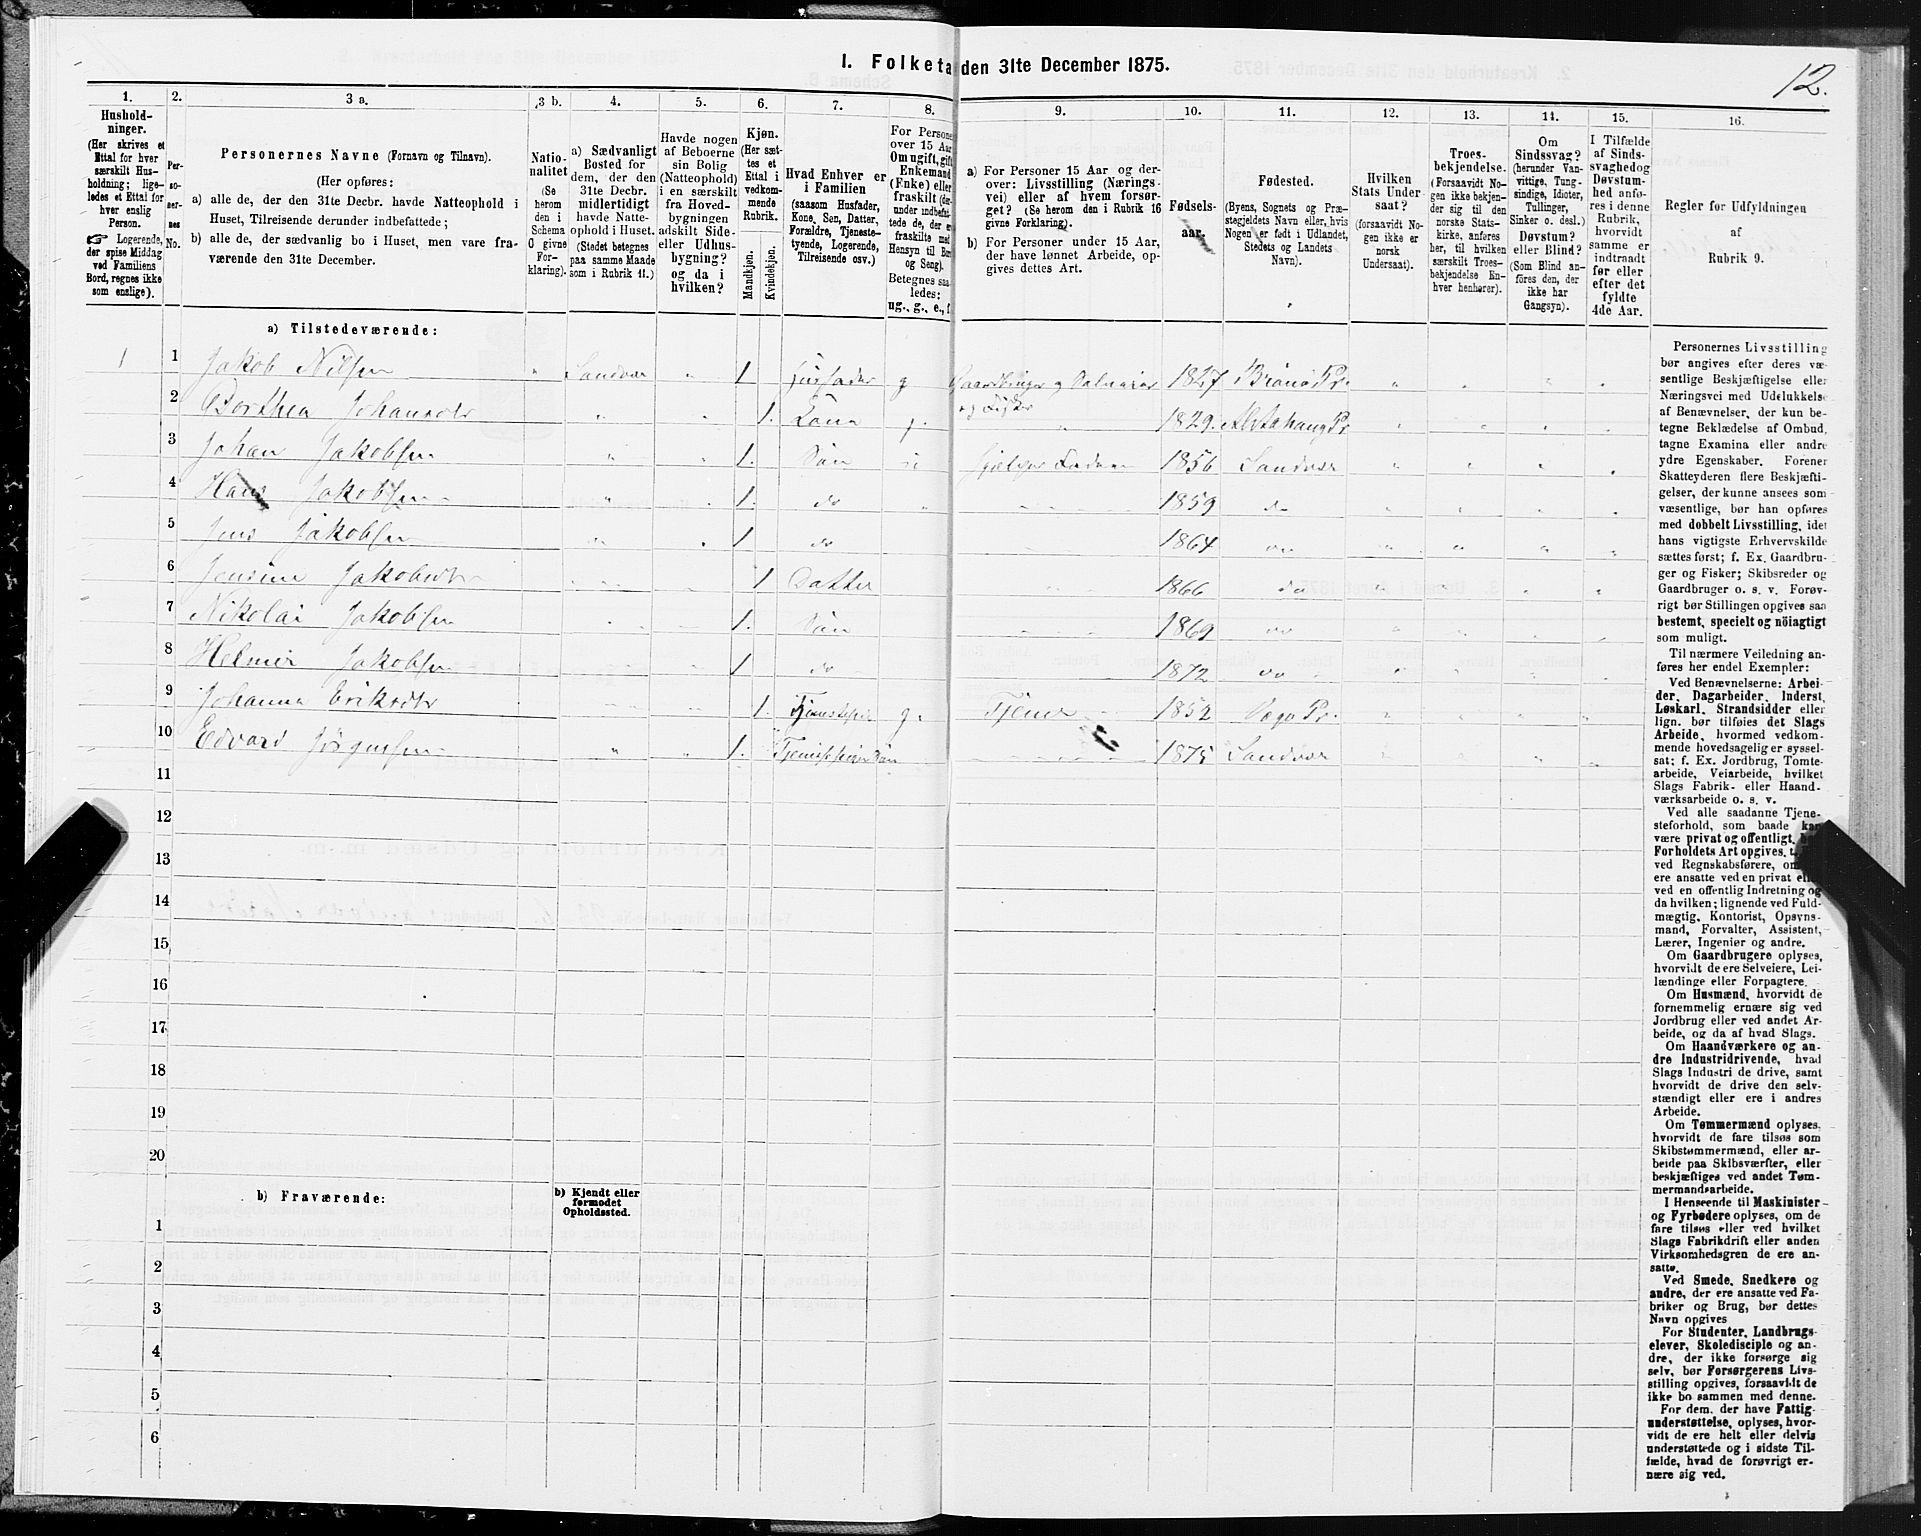 I. Folketa den 31te December 1875.
12.
1.
Hushold-
ninger.
(Her skrives et
Ettal for hver
særskilt Hus-
holdning; lige-
ledes et Ettal for
hver enslig
Person.
☞ Logerende,
der spise Middag
ved Familiens
Bord, regnes ikke
som enslige).
2.
Per-
so-
ner-
nes
No.
3 a.
Personernes Navne (Fornavn og Tilnavn).
(Her opføres:
a) alle de, der den 31te Decbr. havde Natteophold i
Huset, Tilreisende derunder indbefattede;
b) alle de, der sædvanlig bo i Huset, men vare fra-
værende den 31te December.
3 b.
Natio-
nalitet
(Se
herom
den i
Schema
O givne
For-
klaring).
4.
a) Sædvanligt
Bosted for
dem, der den
31te Decbr.
midlertidigt
havde Natte-
ophold i Huset.
(Stedet betegnes
paa samme Maade
som i Rubrik 11.)
5.
Havde nogen
af Beboerne
sin Bolig
(Natteophold)
i en særskilt
fra Hoved-
bygningen
adskilt Side-
eller Udhus-
bygning?
og da i
hvilken?
6.
Kjøn.
(Her sæt-
tes et
Ettal i
vedkom-
mende
Rubrik.
Mandkjøn.
Kvindekjøn.
7.
Hvad Enhver er
i Familien
(saasom Husfader,
Kone, Søn, Datter,
Forældre, Tjeneste-
tyende, Logerende,
Tilreisende osv.)
8.
For Persone
over 15 Aar
Om ugift, gift
Enkemand
(Enke) eller
fraskilt (der-
under indbefat-
tede de, der e
fraskilte med
Hensyn til Bo
og Seng).
Betegnes saa-
ledes:
ug., g., e., f.
9.
a) For Personer 15 Aar og der-
over: Livsstilling (Nærings-
vei) eller af hvem forsør-
get? (Se herom den i Rubrik 16
givne Forklaring).
b) For Personer under 15 Aar,
der have lønnet Arbeide, op-
gives dettes Art.
10.
Fødsels-
aar.
11.
Fødested.
(Byens, Sognets og Præ-
stegjeldets Navn eller, hvis
Nogen er født i Udlandet,
Stedets og Landets
Navn).
12.
Hvilken
Stats Under-
saat?
(forsaavidt No-
gen ikke er
norsk
Undersaat).
13.
Troes-
bekjendelse.
(Forsaavidt No-
gen ikke bekjen-
der sig til den
norske Stats-
kirke, anføres
her, til hvilken
særskilt Troes-
bekjendelse En-
hver henhører).
14.
Om
Sindssvag?
(herunder Van-
vittige, Tung-
sindige, Idioter,
Tullinger,
Sinker o. desl.)
Døvstum?
eller Blind?
(Som Blind an-
føres den, der
ikke har
Gangsyn).
15.
I Tilfælde
af Sinds-
svaghed og
Døvstum-
hed anfø-
res i denne
Rubrik,
hvorvidt
samme er
indtraadt
før eller
efter det
fyldte
4de Aar.
16.
Regler for Udfyldningen
af
Rubrik 9.
a) Tilstedeværende:
1 1 Jakob Nilsen " Sandvær " 1 Husfader g Gaardbruger og Selveier 1827 Brönö Pr. " " " "
og Fisker
2 Dorthea Johansdtr " 1. Kone g. " 1829. Alstahaug Pr. " " " "
3 Johan Jakobsen " " 1. Søn Hjelper Faderen 1856 Sandvær " " " "
4 Hans Jakobsen " 1. do 1859 do " " " "
5 Jens Jakobsen " 1 do 1864 do " " " "
6 Jensine Jakobsdtr 1 Datter 1866 do " " " "
7 Nikolai Jakobsen 1. Søn 1869 do
8 Helmer Jakobsen 1 do 1872 do
9 Johanna Eriksdtr 1. g. Tjener 1852 Vega Pr. " " " "
10 Edvard Jörgensen " " 1. 1875 Sandvær
11
12
13
14
15
16
17
18
19
20
b) Fraværende:
b) Kjendt eller
formodet
Opholdssted.
1
2
3
4
5
6
Personernes Livsstilling
bør angives efter deres væ-
sentlige Beskjæftigelse eller
Næringsvei med Udelukkelse
af Benævnelser, der kun be-
tegne Beklædelse af Ombud,
tagne Examina eller andre
ydre Egenskaber. Forener
Skatteyderen flere Beskjæfti-
gelser, der kunne ansees som
væsentlige, bør han opføres
med dobbelt Livsstilling, idet
hans vigtigste Erhvervskilde
sættes først; f. Ex. Gaardbru-
ger og Fisker; Skibsreder og
Gaardbruger o. s. v. Forøv-
rigt bør Stillingen opgives saa
bestemt, specielt og nöiagtigt
som muligt.
Til nærmere Veiledning an-
føres her endel Exempler:
Ved Benævnelserne: Arbei-
der, Dagarbeider, Inderst,
Løskarl, Strandsidder eller
lign. bør tilføies det Slags
Arbeide, hvormed vedkom-
mende hovedsagelig er syssel-
sat; f. Ex. Jordbrug, Tomte-
arbeide, Veiarbeide, hvilket
Slags Fabrik- eller Haand-
værksarbeide o. s. v.
Ved alle saadanne Tjene-
steforhold, som baade kan
være privat og offentligt,
Forholdets Art opgives,
ved Regnskabsførere, om
ere ansatte ved en privat
ved en offentlig Indretning og
da hvilken; lignende ved Fuld-
mægtig, Kontorist, Opsyns-
mand, Forvalter, Assistent,
Lærer, Ingeniør og andre.
Om Gaardbrugere oplyses,
hvorvidt de ere Selveiere, Lei-
lændinge eller Forpagtere.
Om Husmænd, hvorvidt de
fornemmelig ernære sig ved
Jordbrug eller ved andet Ar-
beide, og da af hvad Slags.
Om Haandværkere og an-
dre Industridrivende, hvad
Slags Industri de drive, samt
hvorvidt de drive den selv-
stændigt eller ere i andres
Arbeide.
Om Tømmermænd oplyses,
hvorvidt de fare tilsøs som
Skibstømmermænd, eller ar-
beide paa Skibsværfter, eller
beskjæftiges ved andet Tøm-
mermandsarbeide.
I Henseende til Maskinister
og Fyrbødere oplyses, om de
fare tilsøs eller ved hvilket
Slags Fabrikdrift eller anden
Virksomhedsgren de ere an-
satte.
Ved Smede, Snedkere og
andre, der ere ansatte ved Fa-
briker og Brug, bør dettes
Navn opgives
For Studenter, Landbrugs-
elever, Skoledisciple og an-
dre, der ikke forsørge sig
selv, bør Forsørgerens Livs-
stilling opgives, forsaavidt de
ikke bo sammen med denne.
For dem, der have Fattig-
understøttelse, oplyses, hvor-
vidt de ere helt eller delvis
understøttede og i sidste Til-
fælde, hvad de forøvrigt er-
nære sig ved.